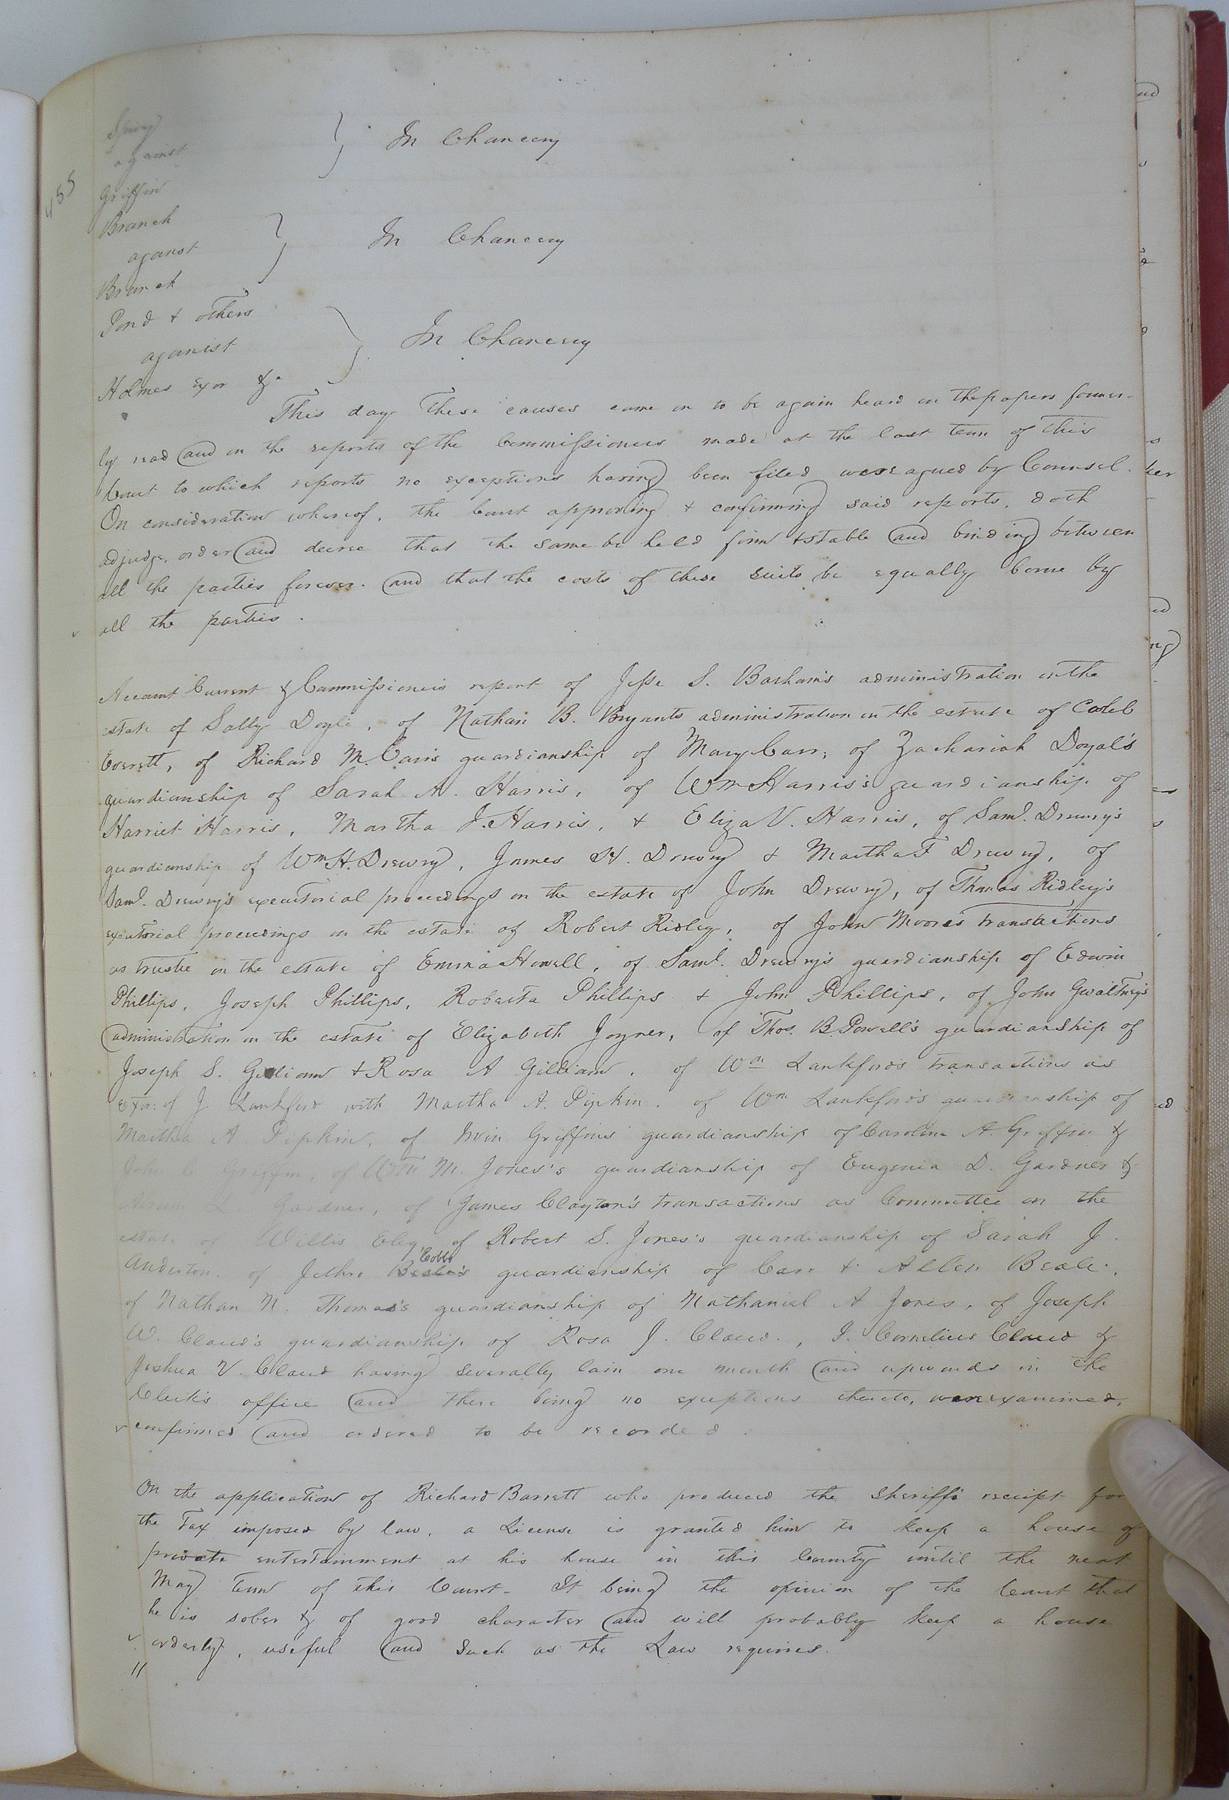 455
Spivey
against } In Chancery
Griffin
Branch
against } In Chancery
Branch
Pond & others
against } In Chancery
Holmes exor &c
This day these causes came on to be again heard on the papers former-
ly read and on the reports of the Commissioners made at the last term of this
Court to which reports no exceptions having been filed were agued by Counsel.
On consideration whereof, the Court approving & confirming said reports, doth
adjudge, order and decree that the same be held firm & stable and binding between
all the parties forever. and that the costs of these suits be equally borne by
all the parties.
Account Current & Commissioners report of Jesse S. Barham's administration on the
estate of Sally Doyle, of Nathan B. Bryants administration on the estate of Caleb
Everett, of Richard M. Carr's guardianship of Mary Carr; of Zachariah Doyal's
guardianship of Sarah A. Harris, of Wm Harris's guardianship of
Harriet Harris, Martha J. Harris, & Eliza V. Harris, of Saml. Drewry's
guardianship of Wm H. Drewry, James H. Drewry & Martha F Drewry, of
Saml. Drewry's executorial proceedings on the estate of John Drewry, of Thomas Ridley's
executorial proceedings on the estate of Robert Ridley, of John Moore's transactions
as trustee in the estate of Emma Howell, of Saml. Drewry's guardianship of Edwin
Phillips, Joseph Phillips, Roberta Phillips & John Phillips, of John Gwaltney's
administration on the estate of Elizabeth Joyner, of Thos. B. Powell's guardianship of
Joseph S. Gilliam & Rosa A Gilliam, of Wm Lankford's transactions as
Exor: of J Lankford with Martha A. Pipkin, of Wm Lankford's guardianship of
Martha A Pipkin, of Irvin Griffins guardianship of Caroline A Griffin &
John C Griffin, of Wm M. Jones's guardianship of Eugenia D. Gardner &
L. Gardner, of James Clayton's transactions as Committee on the
estate of Willis Eley of Robert S. Jones's guardianship of Sarah J.
Anderton, of Jethro Beale's Cobb guardianship of Carr & Allen Beale,
of Nathan N. Thomas's guardianship of Nathaniel A Jones, of Joseph
W. Claud's guardianship of Rosa J. Claud, J. Cornelius Claud &
Joshua V. Claud having severally lain one month and upwards in the
Clerk's office and there being no exceptions thereto, were examined,
confirmed and ordered to be recorded.
On the application of Richard Barrett who produced the Sheriff's receipt for
the Tax imposed by law, a License is granted him to keep a house of
private entertainment at his house in this County until the next
May term of this Court - It being the opinion of the Court that
he is sober & of good character and will probably keep a house
orderly, useful and such as the Law requires.